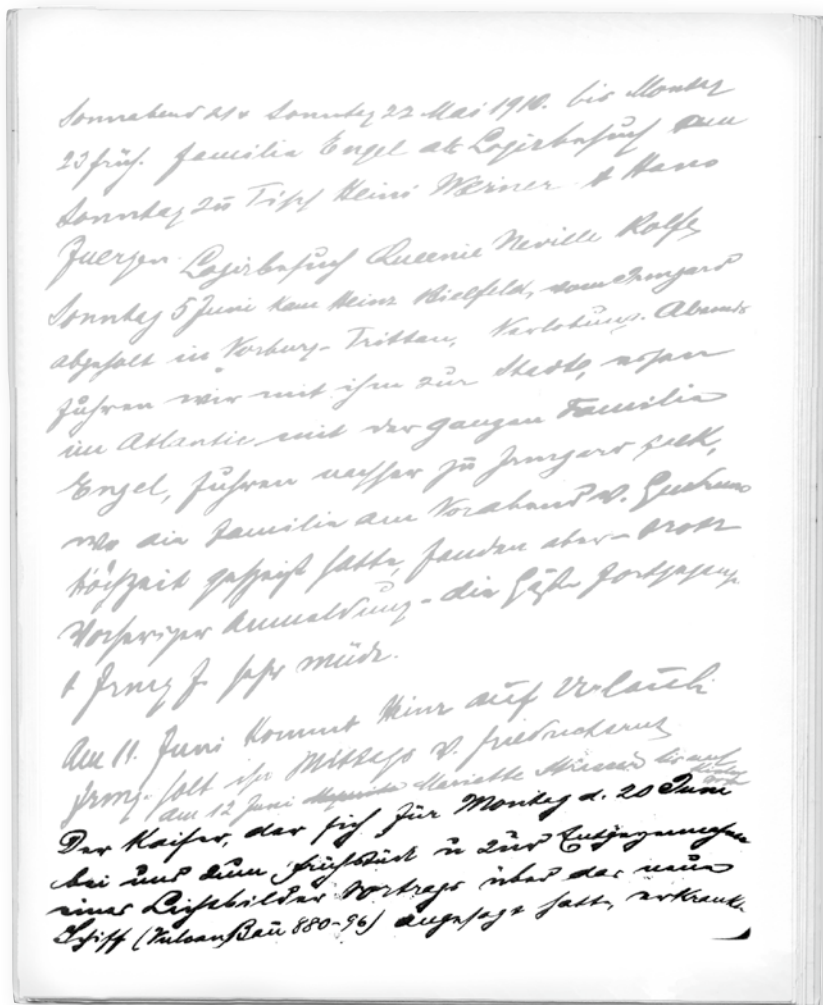 Sonnabend 21 u Sonntag 22 Mai 1910. bis Montag
23 früh. Familie Engel als Logirbesuch am
Sonntag zu Tisch Heini Werner & Hans
Juergen Logirbesuch Queenie Neville Rolfe
Sonntag 5 Juni kam Heinz Bielfeld, von Irmgard
abgeholt in Vorburg-Trittau, Verlobung. Abends
fuhren wir mit ihm zur Stadt, assen
im Atlantic mit der ganzen Familie
Engel, fuhren nachher zu Irmgard
wo die Familie am Vorabend v. Gudruns
Hochzeit gespeist hatte, fanden aber - trotz
Vorheriger Anmeldung - die Gäste fortgegang.
& Irmg J. sehr müde.
Am 11. Juni kommt Heinz auf Urlaub
Irmg. holt ihn Mittags v. Friedrichsruh
am 12 Juni Mariette bis auf
Der Kaiser, der sich für Montag d. 20 Juni
bei uns zum Frühstück u zur Entgegennahme
eines Lichtbilder Vortrags über das neue
Schiff (Vulcan Bau 880-96) angesagt hatte, erkrankte